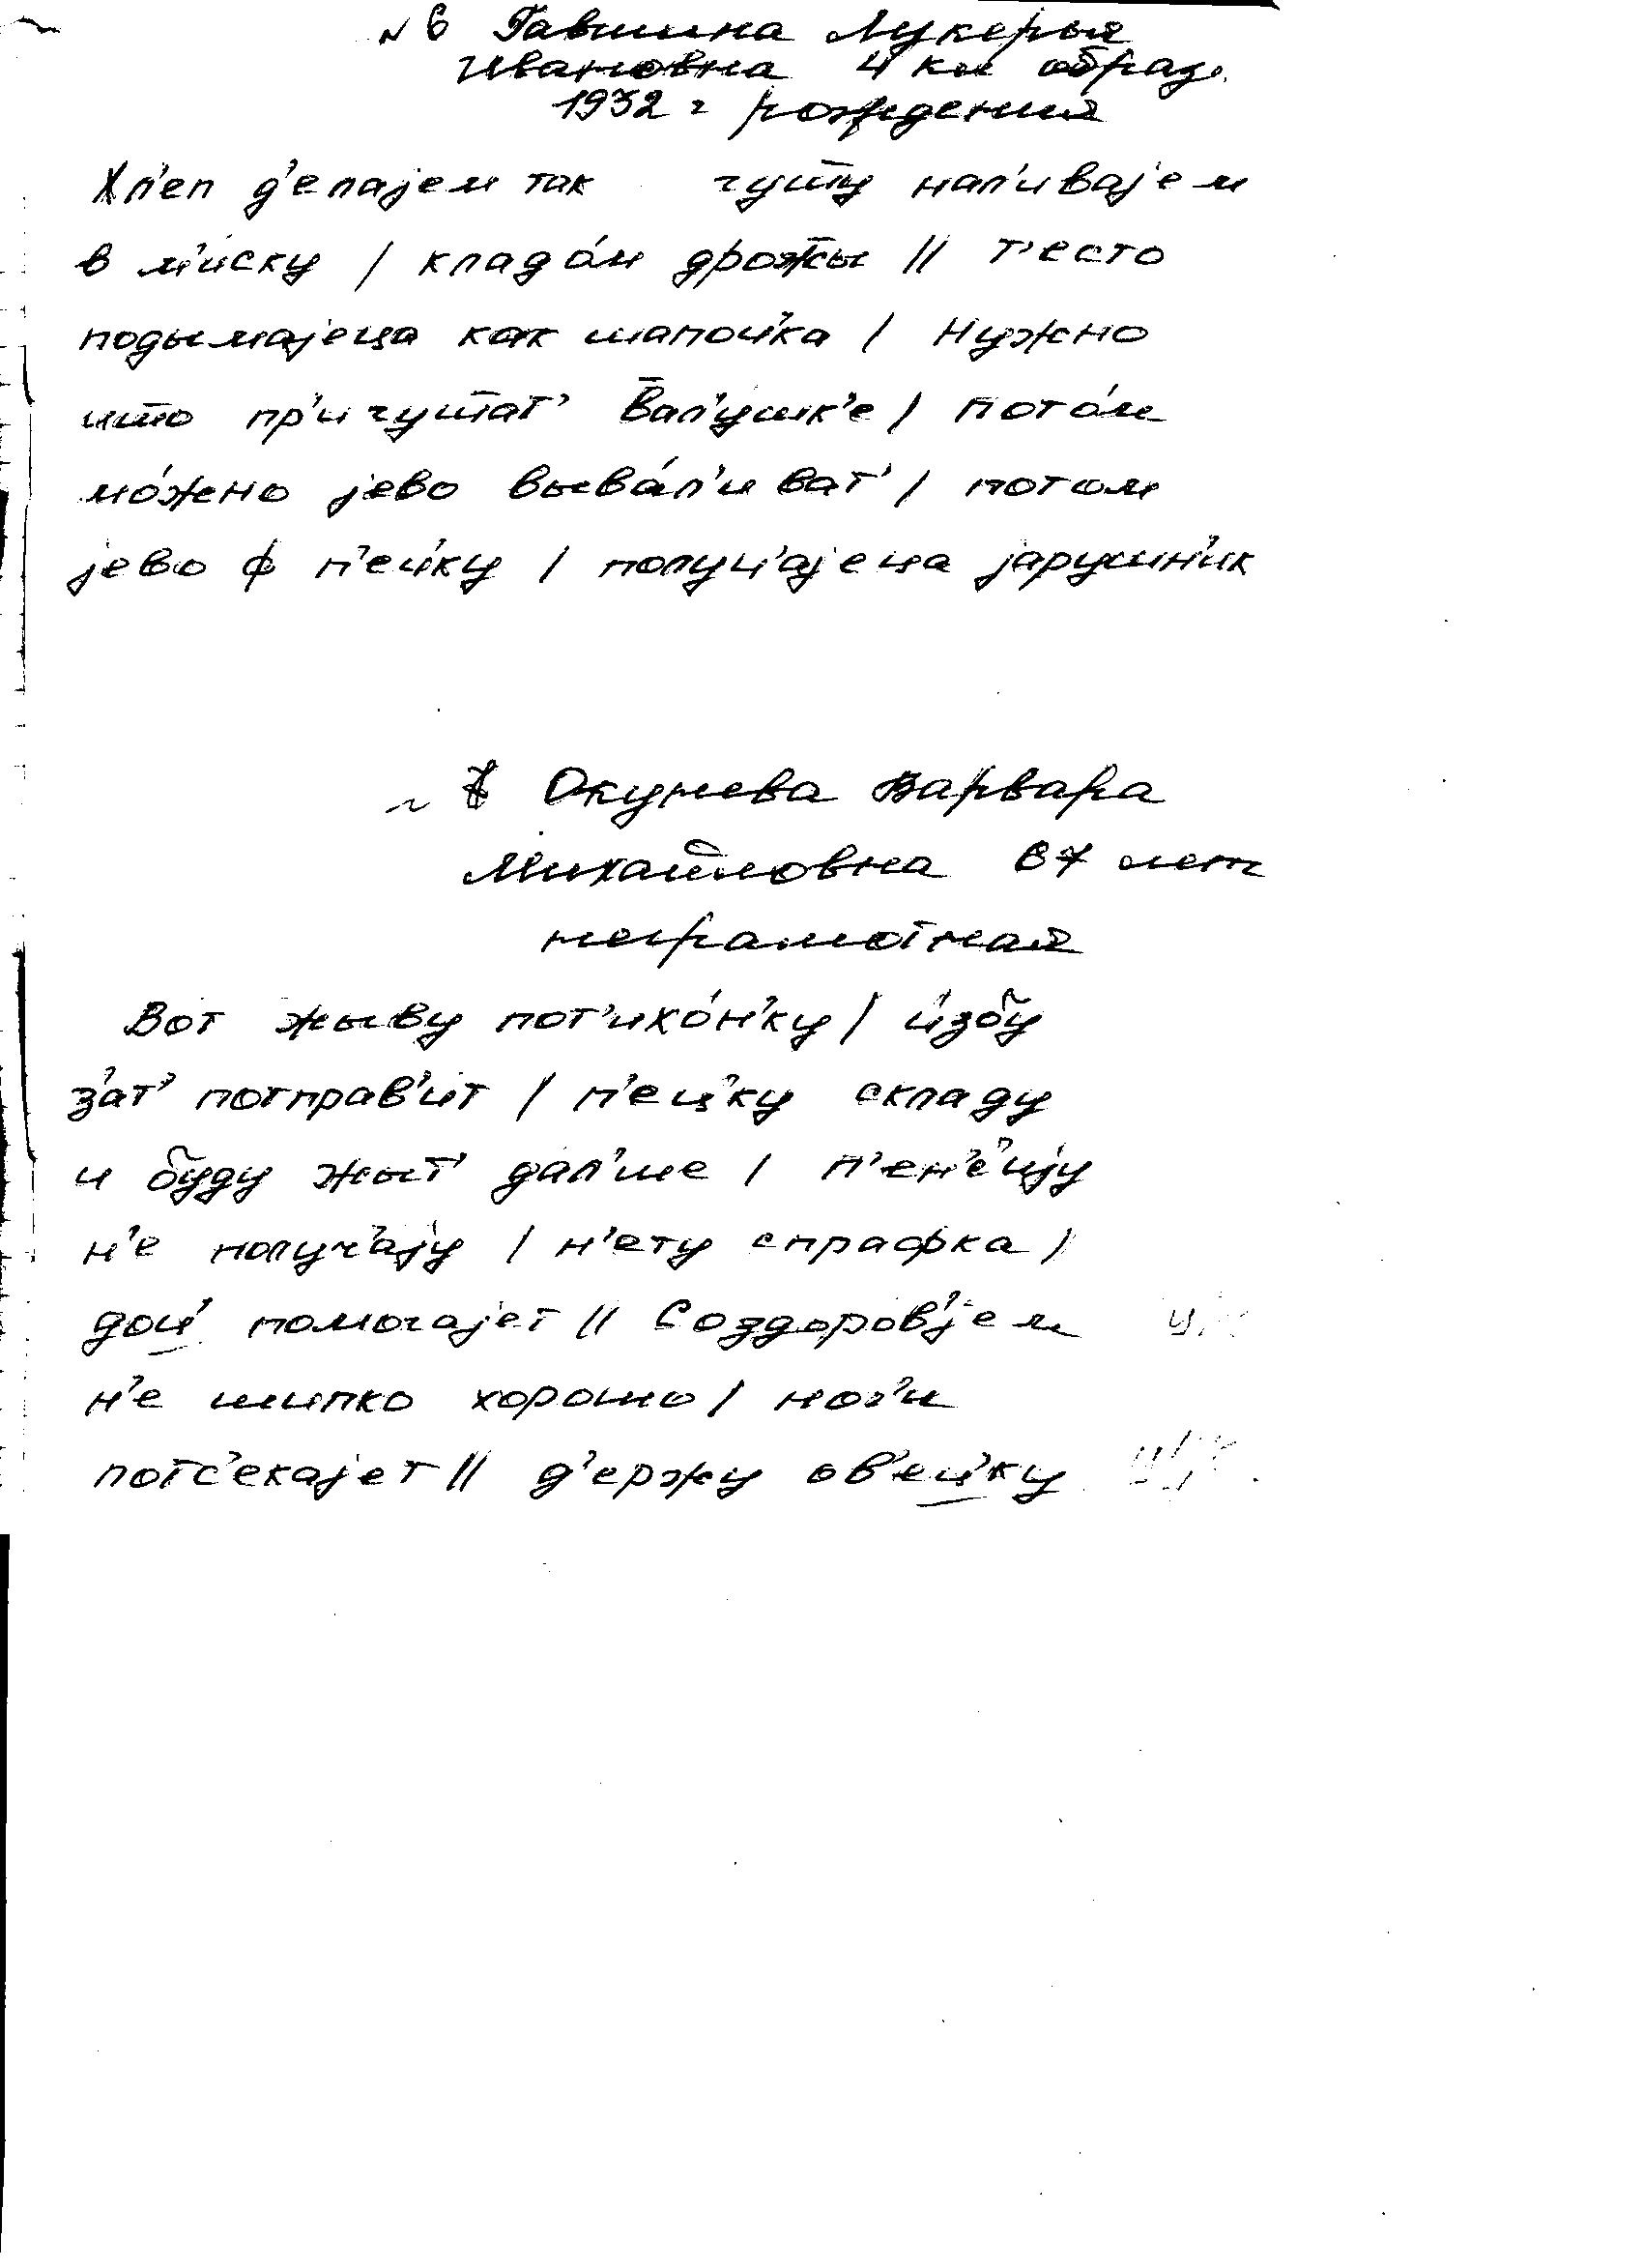 № 6 Гавшина Лукерья
Ивановна 4 кл образ.
1932 г рождения
Хл'еп д'елајем так гушш̅у нал'ивајем
в м'иску / кладо́м дрож̅ы // т'есто
подымајеца как шапоц'ка / Нужно
што пр'игушш̅ат' вал'ушк'е / пото́м
мо́жено јево выва́л'иват' / потом
јево ф п'ец'ку / полуц'ајеца јарушн'ик
№ 7 Окунева Варвара
Михайловна 67 лет
неграмотная
Вот жыву пот'ихо́н'ку / и́збу
з'ат' потправ'ит / п'ец'ку складу
и буду жыт' дал'ше / п'ен'е́ију
н'е получ'ају / н'ету спрафка /
доц' помогајет // Со здоров'јем
н'е шипко хорошо / ног'и
потс'екајет // д'ержу ов'ец'ку